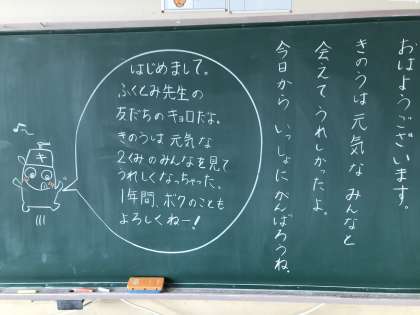 おはようございます。
きのうは元気なみんなと
会えてうれしかったよ。
今日からいっしょにがんばろうね。
はじめまして。
ふくとみ先生の
友だちのキョロだよ。
きのうは元気な
2くみのみんなを見て
うれしくなっちゃった。
1年間、ボクのことも
よろしくねー!
キ